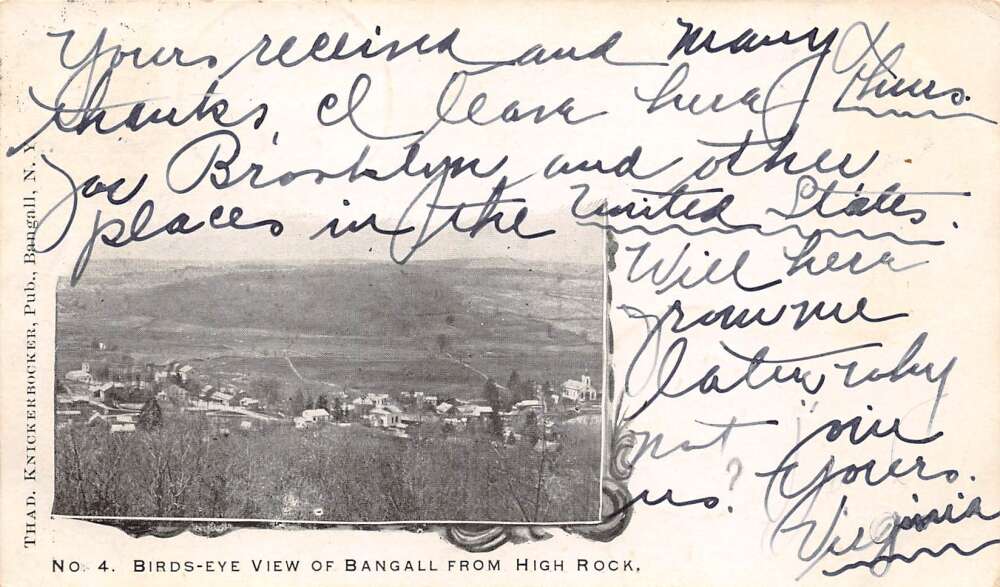 Yours received and many
thanks, I leave here Thurs.
for Brooklyn and other
places in the United States.
Will hear
from me
later why
not join
us? Yours.
Virginia
THAD. KNICKERBOCKER, Pub., Bangall, N. Y.
NO. 4. BIRDS-EYE VIEW OF BANGALL FROM HIGH ROCK.